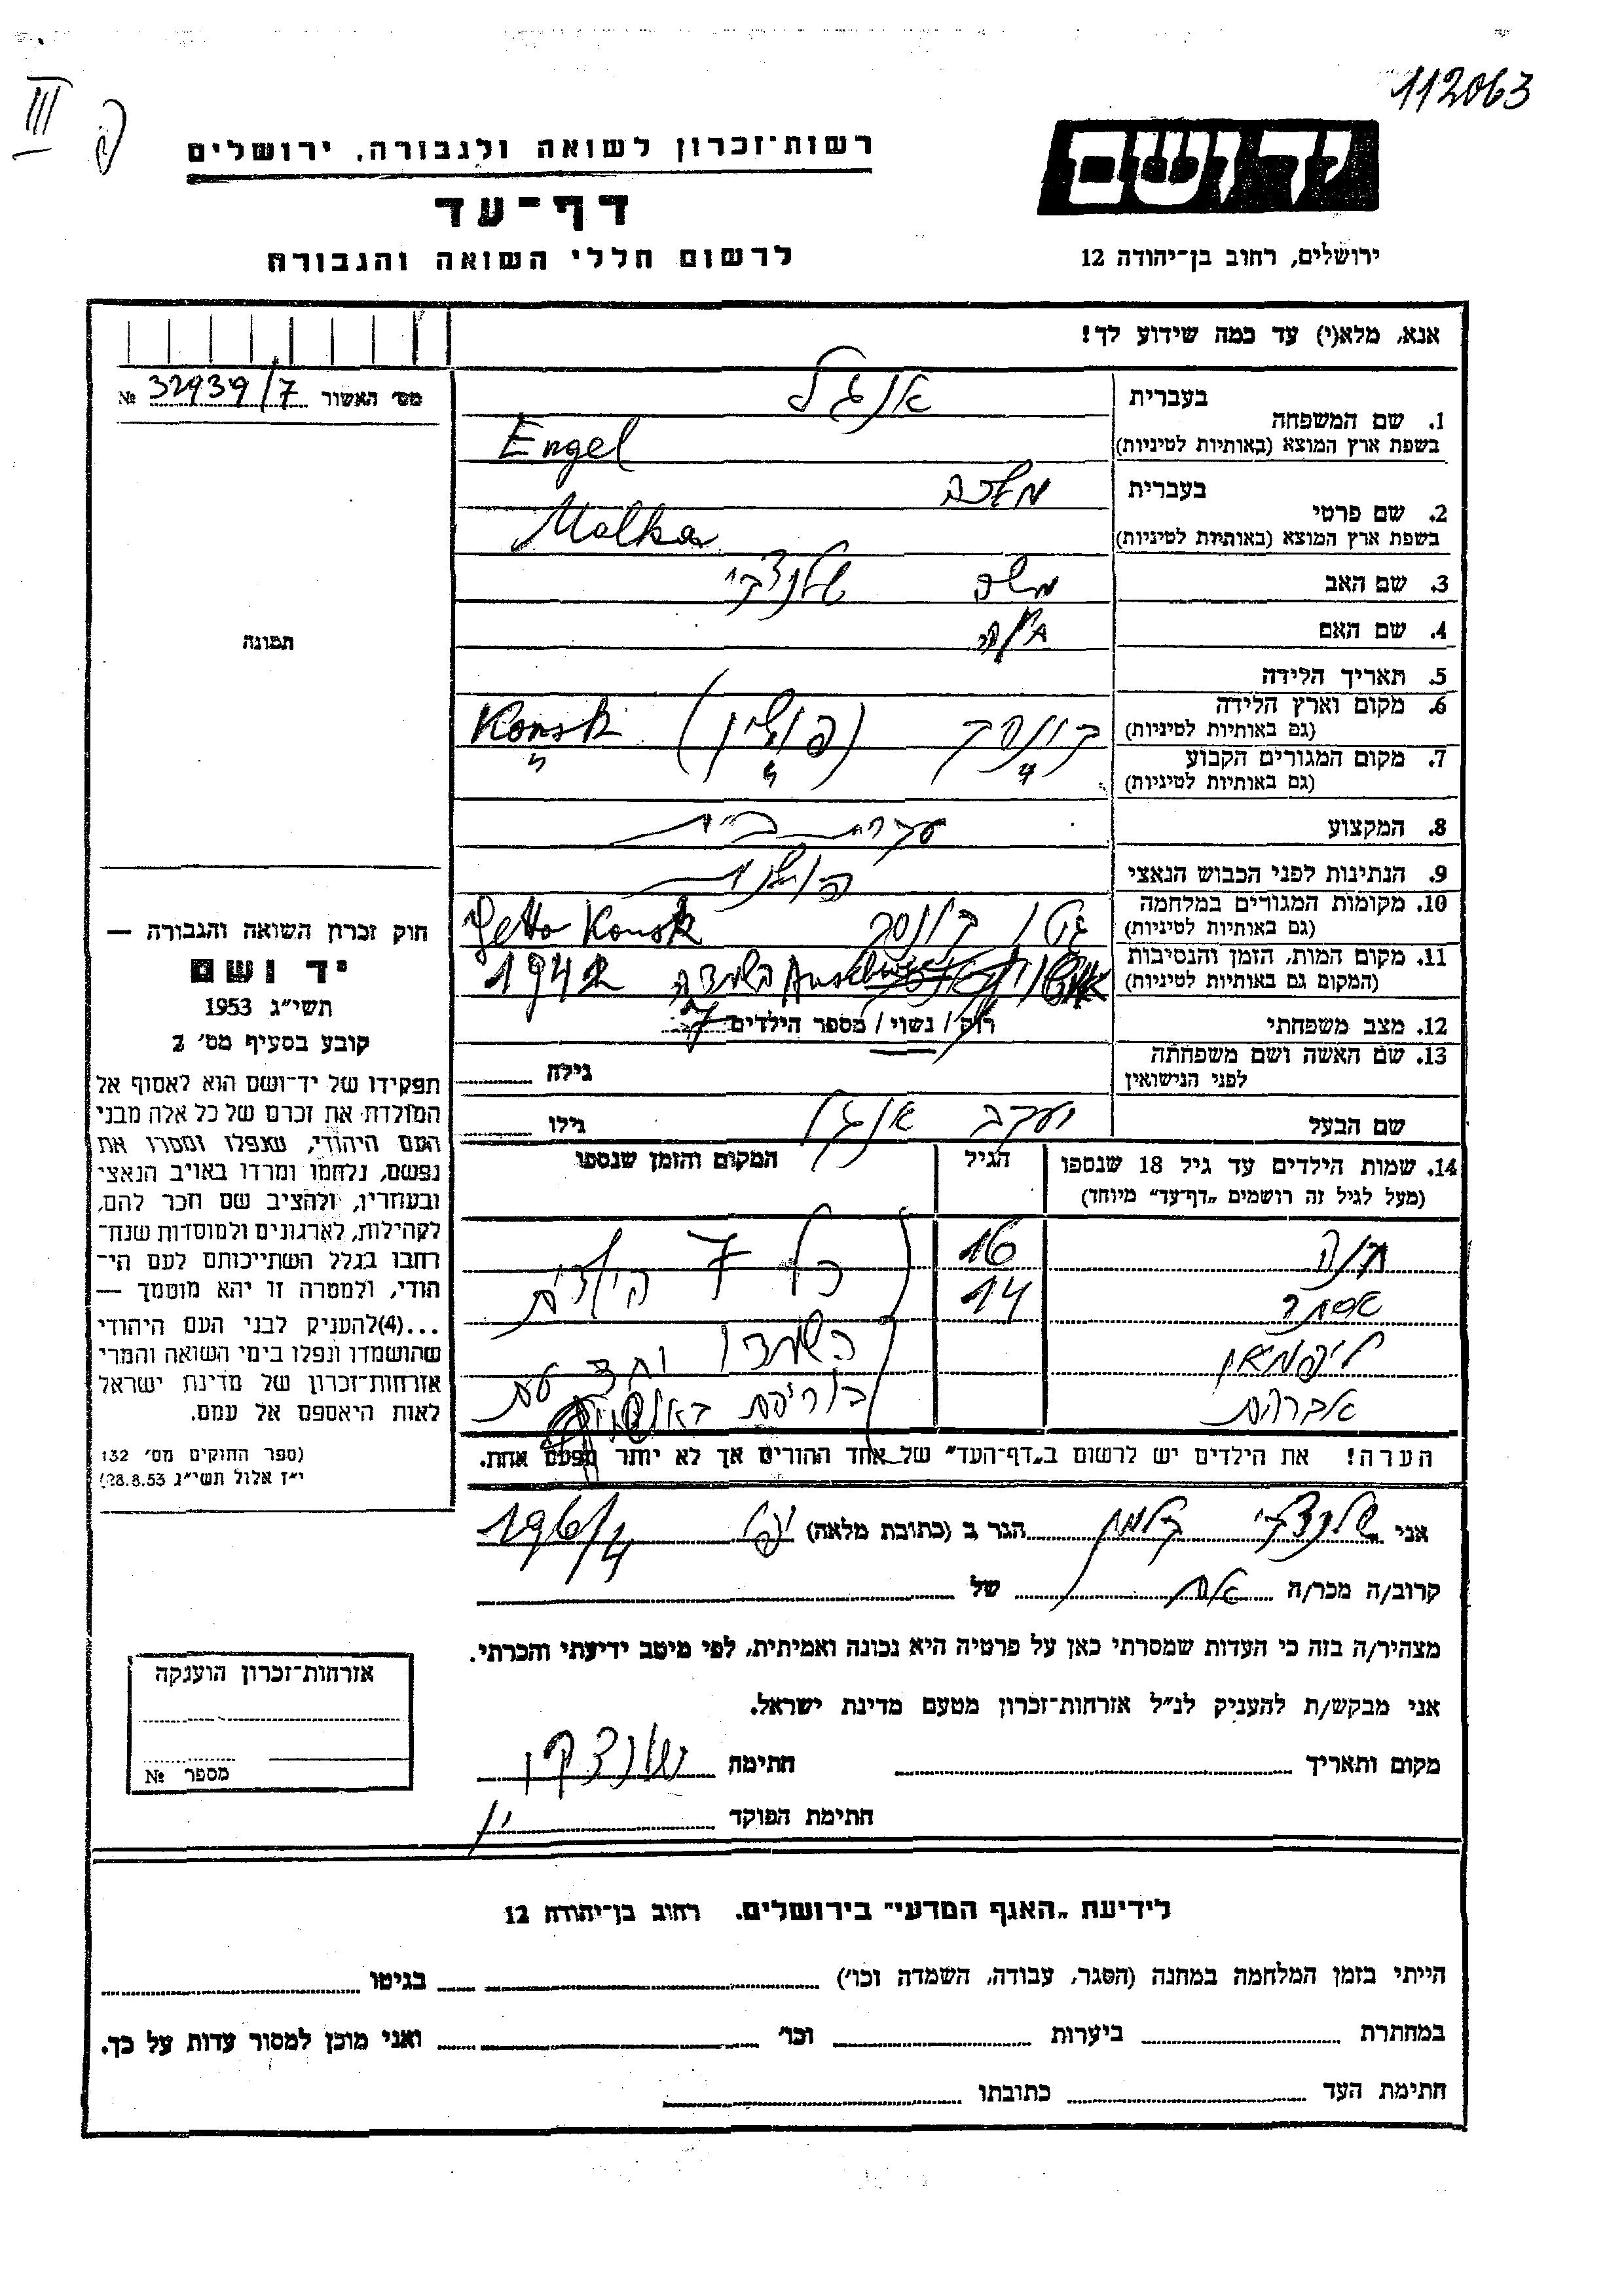 112063
III
רשות־זכרון לשואה ולגבורה, ירושלים
דף־עד
לרשום חללי השואה והגבורה
יד ושם
ירושלים, רחוב בן־יהודה 12
אנא, מלא(י) עד כמה שידוע לך!
מס׳ האשור № 32939/7
1. שם המשפחה
בעברית אנגל
בשפת ארץ המוצא (באותיות לטיניות) Engel
2. שם פרטי
בעברית מלכה
בשפת ארץ המוצא (באותיות לטיניות) Malka
3. שם האב משה
4. שם האם
5. תאריך הלידה
6. מקום וארץ הלידה
(גם באותיות לטיניות) קונסק (פולין) Konsk
7. מקום המגורים הקבוע
(גם באותיות לטיניות) " " "
8. המקצוע עקרת בית
9. הנתינות לפני הכבוש הנאצי פולנית
10. מקומות המגורים במלחמה
(גם באותיות לטיניות) גטו קונסק Getto Konsk
11. מקום המות, הזמן והנסיבות
(המקום גם באותיות לטיניות) השמדה 1942
12. מצב משפחתי רוק / נשוי / מספר הילדים 7
13. שם האשה ושם משפחתה
לפני הנישואין
גילה
שם הבעל יעקב אנגל
גילו
14. שמות הילדים עד גיל 18 שנספו
(מעל לגיל זה רושמים „דף־עד״ מיוחד)
הגיל
המקום והזמן שנספו
חנה 16 כל 7 הילדים
אסתר 14
השמדו יחד עם
אברהם
הערה! את הילדים יש לרשום ב„דף־העד״ של אחד ההורים אך לא יותר מפעם אחת.
אני שלנצקי קלמן הגר ב (כתובת מלאה) יפו 196/4
קרוב/ה מכר/ה אח של
מצהיר/ה בזה כי העדות שמסרתי כאן על פרטיה היא נכונה ואמיתית, לפי מיטב ידיעתי והכרתי.
אני מבקש/ת להעניק לנ״ל אזרחות־זכרון מטעם מדינת ישראל.
מקום ותאריך
חתימה
חתימת הפוקד
תמונה
חוק זכרון השואה והגבורה —
יד ושם
תשי״ג 1953
קובע בסעיף מס׳ 2
תפקידו של יד־ושם הוא לאסוף אל
המולדת את זכרם של כל אלה מבני
העם היהודי, שנפלו ומסרו את
נפשם, נלחמו ומרדו באויב הנאצי
ובעוזריו, ולהציב שם וזכר להם,
לקהילות, לארגונים ולמוסדות שנח־
רבו בגלל השתייכותם לעם הי־
הודי, ולמטרה זו יהא מוסמך —
...(4)להעניק לבני העם היהודי
שהושמדו ונפלו בימי השואה והמרי
אזרחות־זכרון של מדינת ישראל
לאות היאספם אל עמם.
(ספר החוקים מס׳ 132
י״ז אלול תשי״ג 28.8.53)
אזרחות־זכרון הוענקה
מספר №
לידיעת „האגף המדעי״ בירושלים. רחוב בן־יהודה 12
הייתי בזמן המלחמה במחנה (הסגר, עבודה, השמדה וכו׳) בגיטו
במחתרת ביערות וכו׳ ואני מוכן למסור עדות על כך.
חתימת העד כתובתו